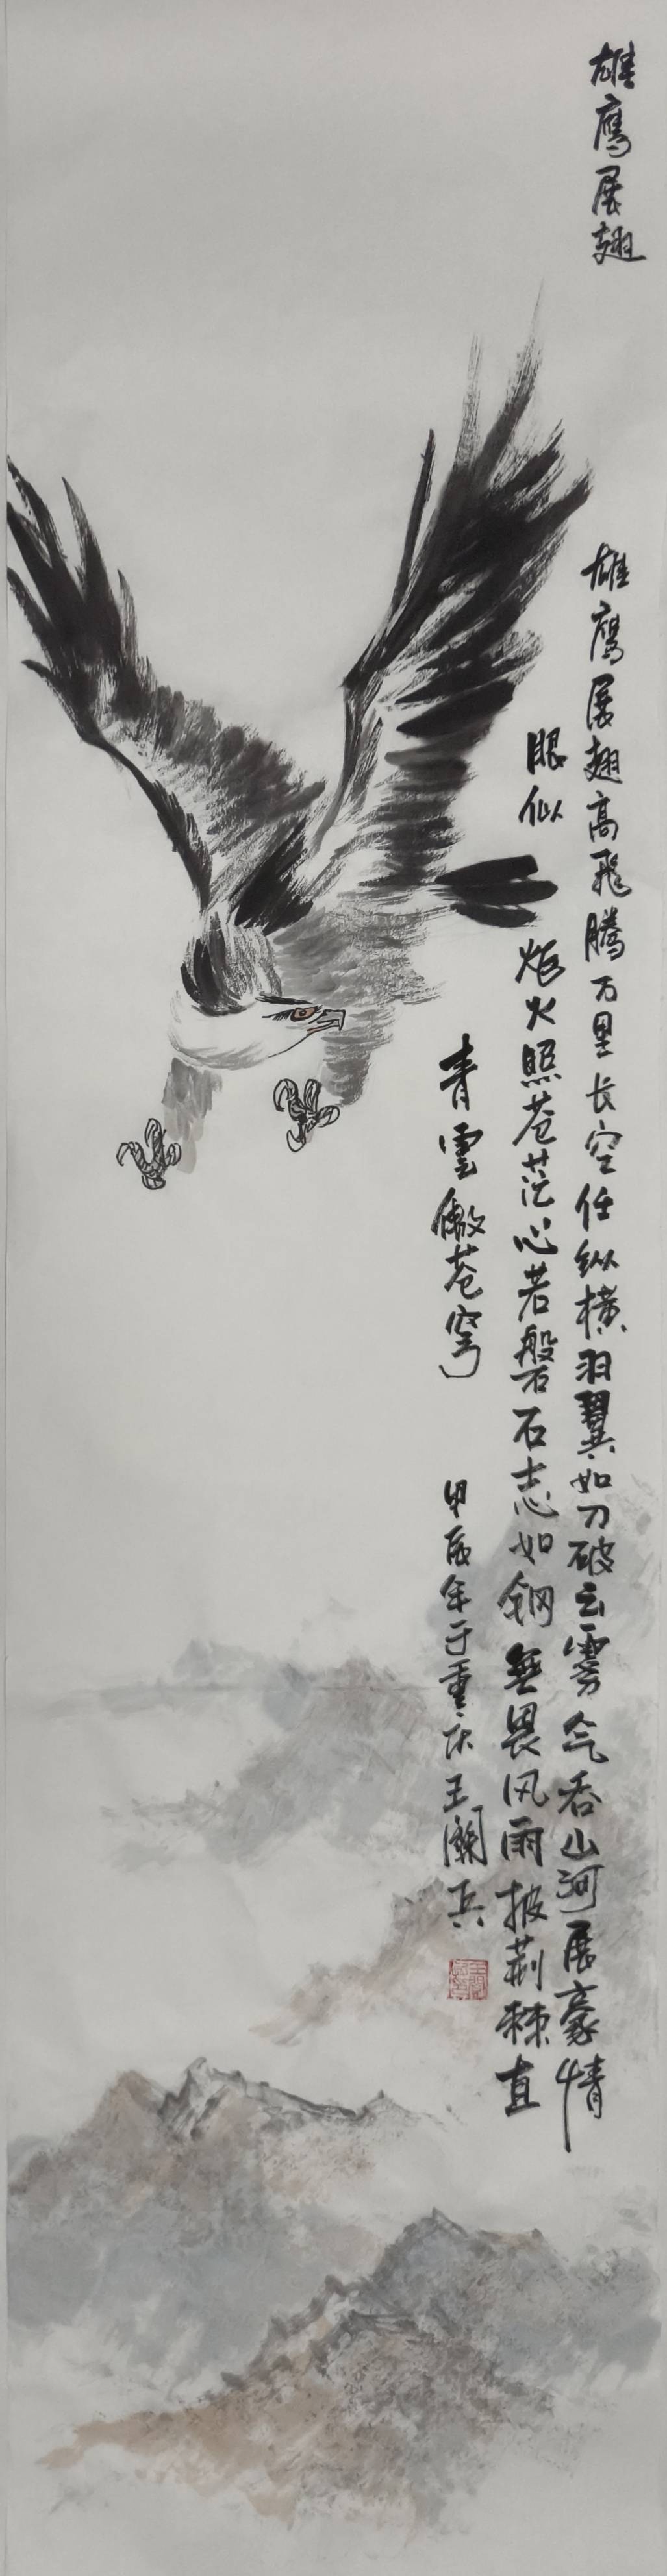 雄鹰展翅
雄鹰展翅高飛腾万里长空任纵横羽翼如刀破云雾气吞山河展豪情
眼似炬火照苍茫心若磐石志如钢無畏风雨披荆棘直
青雲傲苍穹
甲辰年于重庆王澜兵